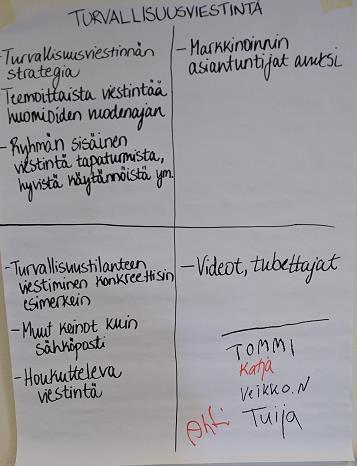 TURVALLISUUSVIESTINTÄ
- Turvallisuusviestinnän
strategia
Teemoittaista viestintää
huomioiden vuodenajan
- Ryhmän sisäinen
viestintä tapaturmista,
hyvistä käytännöistä ym.
- Markkinoinnin
asiantuntijat avuksi
- Turvallisuustilanteen
viestiminen konkreettisin
esimerkein
- Muut keinot kuin
sähköposti
- Houkutteleva
viestintä
- Videot, tubettajat
TOMMI
Katja
Veikko.N
Ahti Tuija